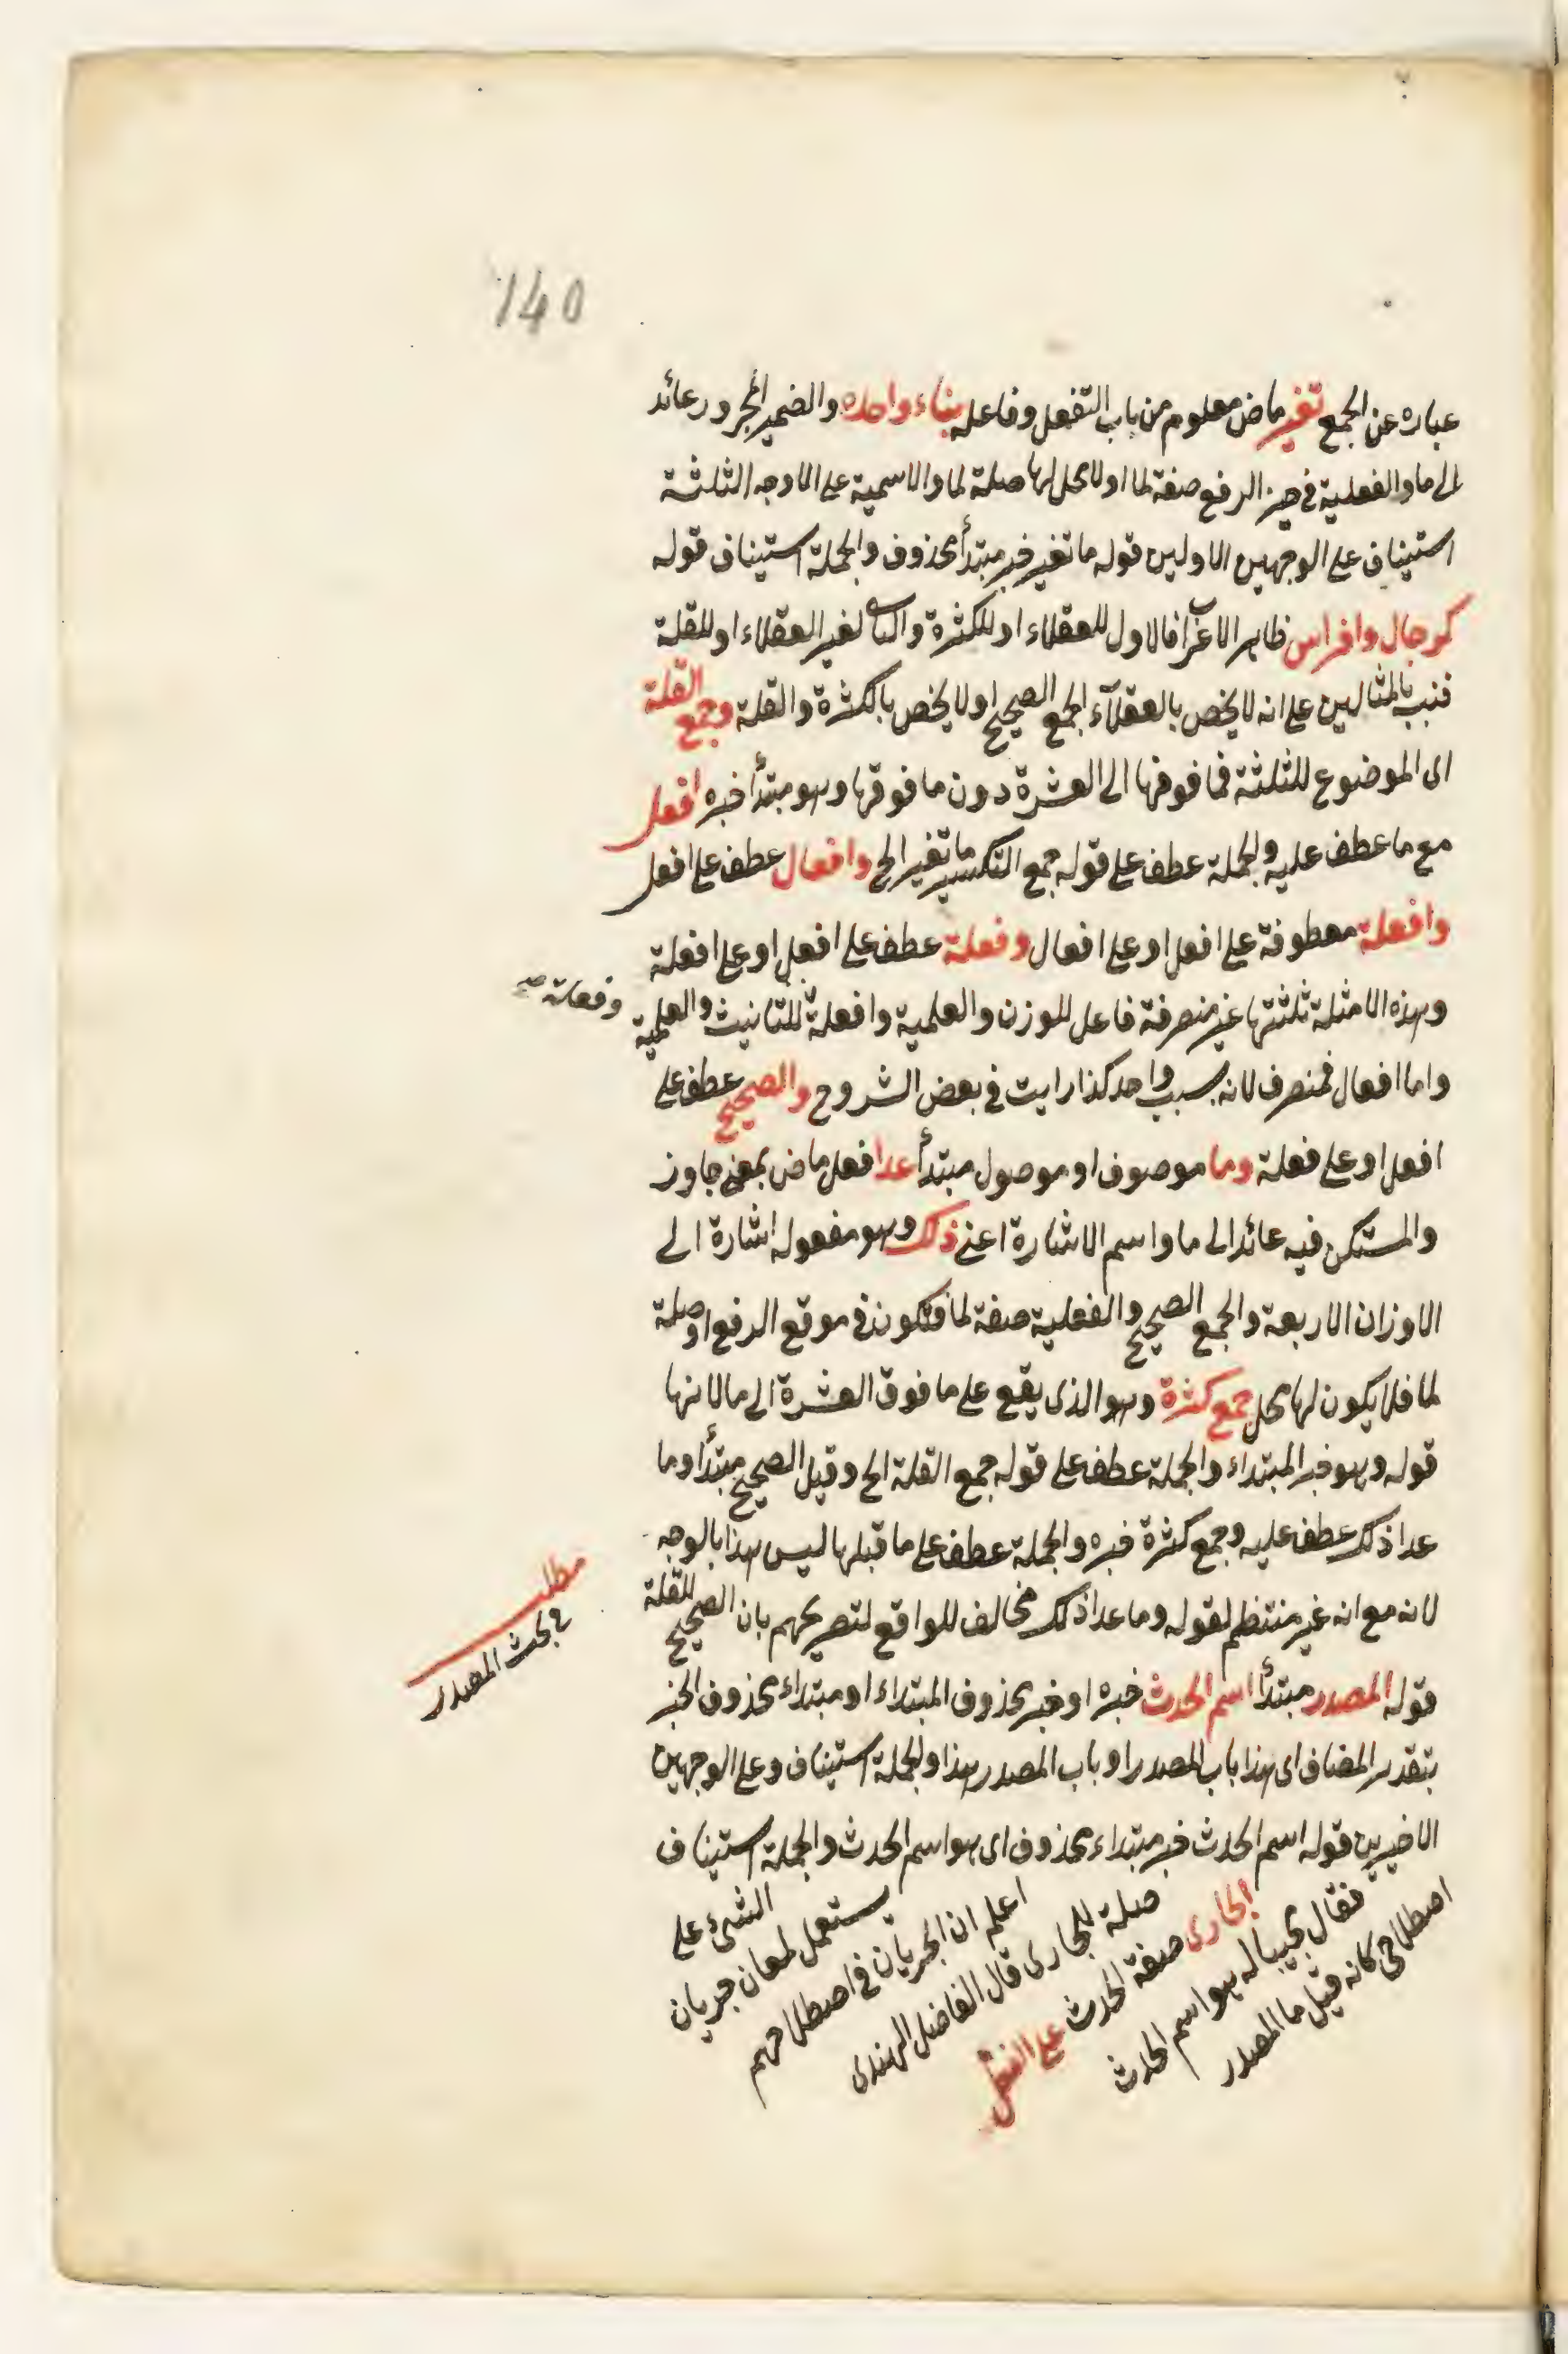 140
عباره عن الجمع تغير ماض معلوم من باب التفعل وفاعله بناء واحده والضمير المجرور عائد
الى ما والفعلية فى حيز الرفع صفة لما او لا محل لها صلة لما والاسمية على الاوجه الثلثة
استيناف على الوجهين الاولين قوله ما تغير خبر مبتدأ محذوف والجملة استيناف قوله
كرجال وافراس ظاهر الاعراب فالاول للعقلاء او للكثرة والثانى لغير العقلاء او للقلة
فنبه بالمثالين على انه لا يخص بالعقلآء الجمع الصحيح او لا يخص بالكثرة والقلة وجمع القلة
اى الموضوع للثلثة فما فوقها الى العشرة دون ما فوقها وهو مبتدأ خبره افعل
مع ما عطف عليه والجملة عطف على قوله جمع التكسير ما تغير الخ وافعال عطف على افعل
وافعلة معطوفة على افعل او على افعال وفعلة عطف على افعل او على افعلة
وهذه الامثلة ثلثتها غير منصرفة فاعل للوزن والعلمية وافعلة للتانيث والعلمية
وفعلة صح
واما افعال فمنصرف لانه بسبب واحد كذا رايت فى بعض الشروح والصحيح عطف على
افعل او على فعلة وما موصوف او موصول مبتدأ عدا فعل ماض بمعنى جاوز
والمستكن فيه عائد الى ما واسم الاشارة اعنى ذلك وهو مفعوله اشارة الى
الاوزان الاربعة والجمع الصحيح والفعلية صفة لما فتكون فى موقع الرفع او صلة
لما فلا يكون لها محل جمع كثرة وهو الذى يقع على ما فوق العشرة الى ما لا نها
قوله وهو خبر المبتداء والجملة عطف على قوله جمع القلة الخ وقيل الصحيح مبتدأ وما
عدا ذلك عطف عليه وجمع كثرة خبره والجملة عطف على ما قبلها ليس هذا بالوجه
لانه مع انه غير منتظم لقوله وما عدا ذلك مخالف للواقع لتصريحهم بان الصحيح للقلة
مطلب
فى بحث المصدر
قوله المصدر مبتدأ اسم الحدث خبره او خبر محذوف المبتداء او مبتداء محذوف الخبر
بتقدير المضاف اى هذا باب المصدر او باب المصدر هذا والجملة استيناف وعلى الوجهين
الاخيرين قوله اسم الحدث خبر مبتداء محذوف اى هو اسم الحدث والجملة استيناف
اصطلاحى كانه قيل ما المصدر
فقال مجيبا له هو اسم الحدث
الجارى صفة الحدث على الفعل
صلة للجارى قال الفاضل الهندى
اعلم ان الجريان فى اصطلاحهم
يستعمل لمعان جريان
الشئ على